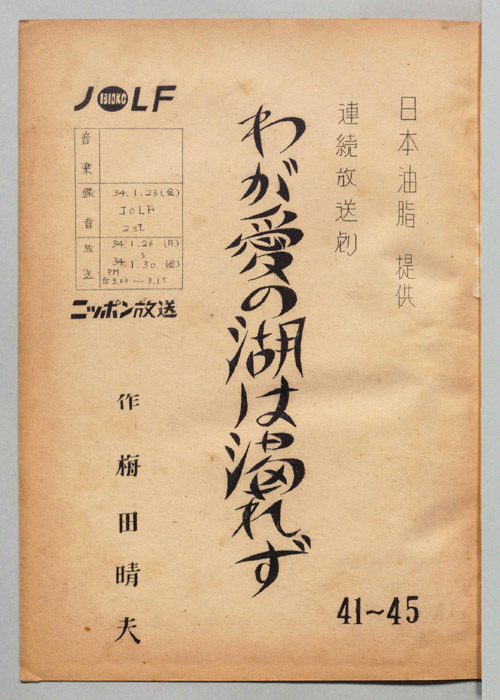 日本油脂 提供
連続放送劇
わが愛の湖は涸れず
41~45
作 梅田晴夫
JOLF
1310KC
音楽
録音
34.1.23(金)
JOLF
2st
放送
34.1.26(月)
34.1.30(金)
PM
3.00~3.15
ニッポン放送